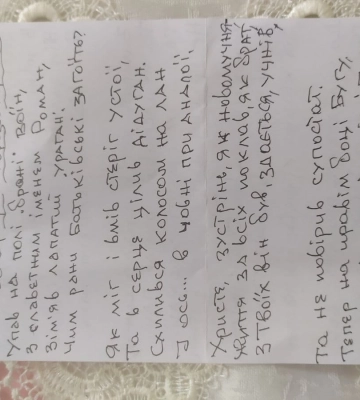 Упав на полі брані воїн,
З славетним іменем Роман,
Зім'яв лапатий ураган.
Чим рани батьківські загоїть?
Як міг і вмів стеріг устої,
Та в серце цілив дідуган.
Схилився колосом на лан
І ось... в човні при аналої.
Христе, зустрінь, як новомучня
Життя за всіх поклав, як брат,
З Твоїх він був, здається, учнів,
Та не повірив супостат.
Тепер на правім боці Бугу,